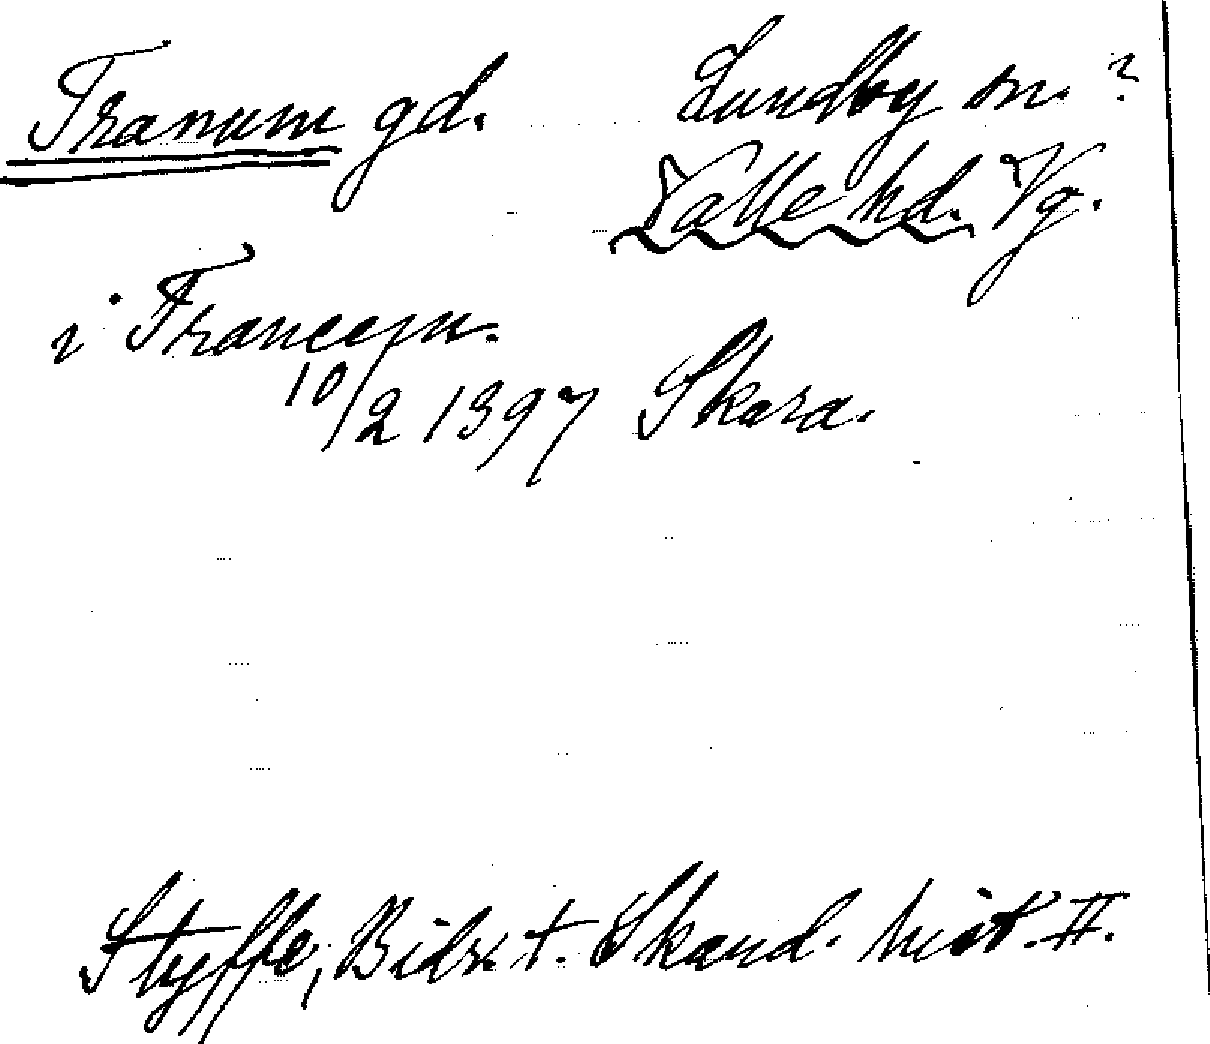 Tranum gd. Lundby sn. ?
Valle hd. Vg.
i Tranem.
10/2 1397 Skara.
Styffe, Bidr. t. Skand. hist. II.